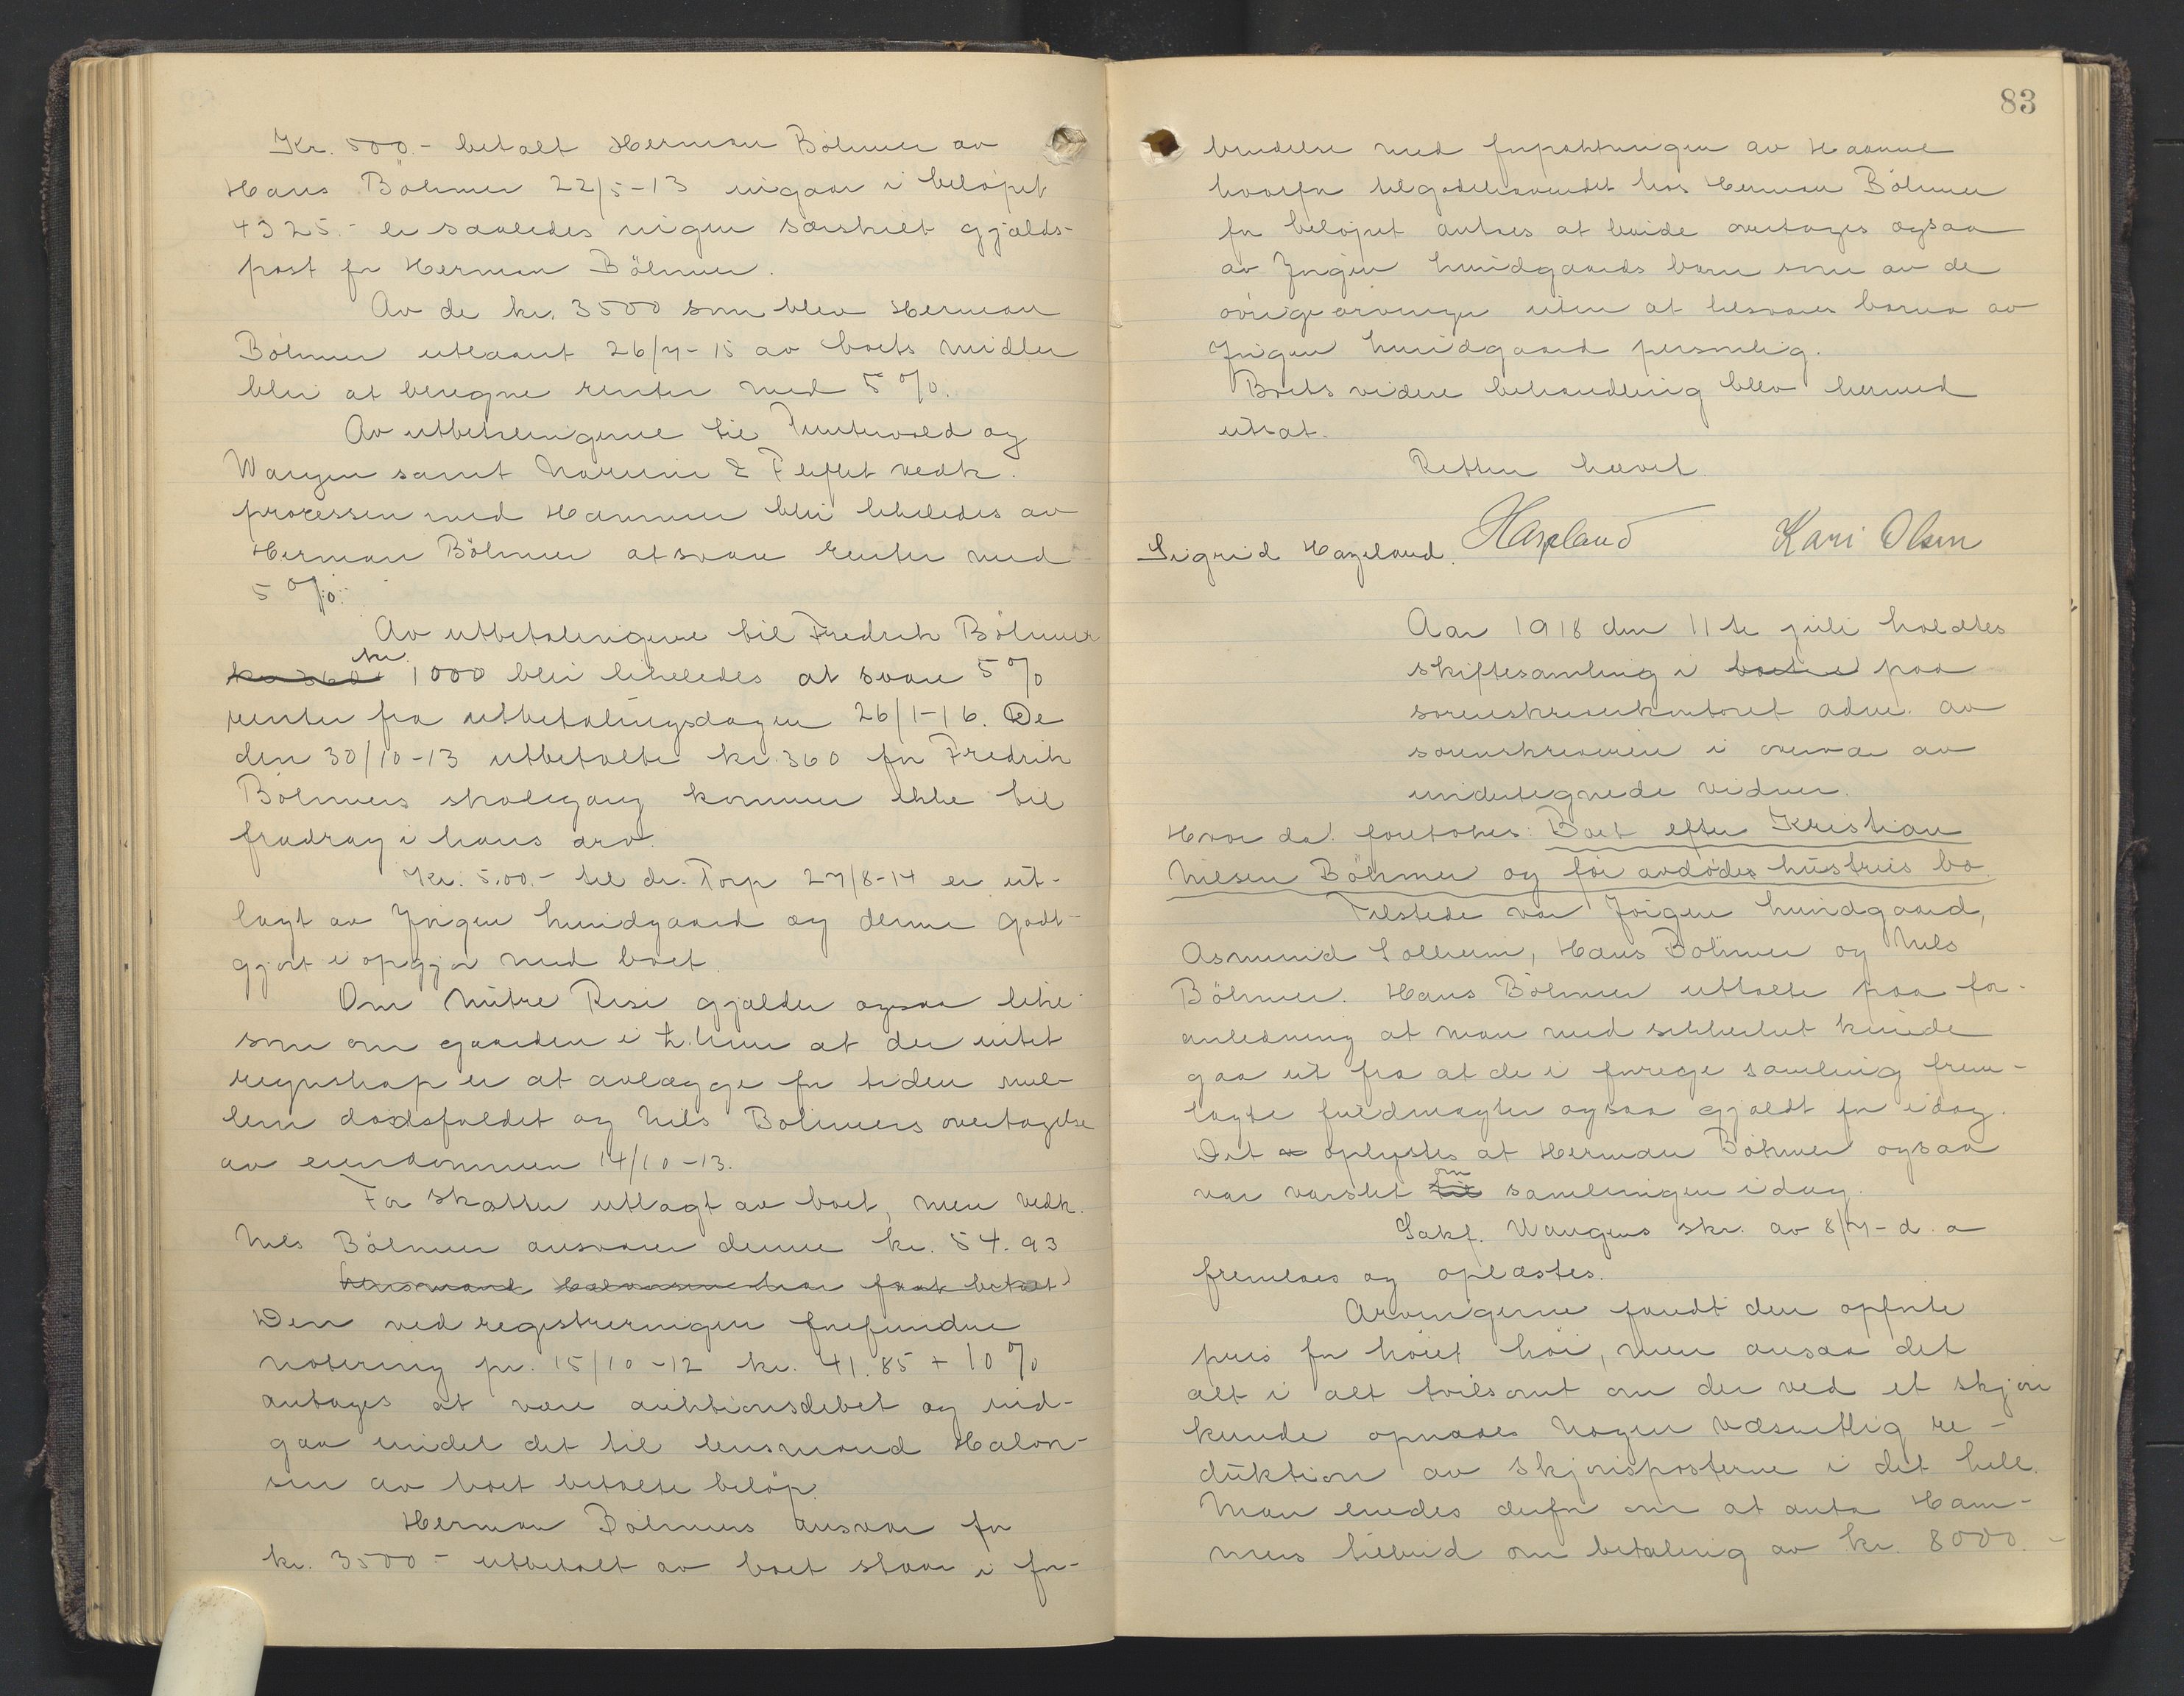 Kr. 500.- betalt Herman Böhmer av
Hans Böhmer 22/5-13 ingaar i beløpet
4325.- er saaledes ingen særskilt gjælds-
post for Herman Böhmer.
Av de kr. 3500 som blev Herman
Böhmer utlaant 26/7-15 av boets midler
blir at beregne renter med 5 %.
Av utbetalingerne til Tuntvoed og
Wangen samt Narum & Fleflet vedk.
processen med Hammer blir likeledes av
Herman Böhmer at svare renter med
5 %.
Av utbetalingerne til Fredrik Böhmer
kr 360 kr 1000 blir likeledes at svare 5 %
renter fra utbetalingsdagen 26/1-16. De
den 30/10-13 utbetalte kr. 360 for Fredrik
Böhmers skolegang kommer ikke til
fradrag i hans arv.
Kr. 5.00.- til dr. Torp 27/8-14 er ut-
lagt av Jørgen Lundgaard og denne godt-
gjort i opgjør med boet.
Om Nutre Risi gjælder ogsaa like-
som om gaarden i L.hmr at der intet
regnskap er at avlægge for tiden mel-
lem dødsfaldet og Nils Böhmers overtagelse
av eiendommen 14/10-13.
For skatter utlagt av boet, men vedk.
Nils Böhmer ansvarer denne kr. 54.93
Lensmand Halvorsen har faat betalt
Den ved registreringen forefundne
notering pr. 15/10-12 kr. 41.85 + 10 %
antages at være auktionsdebet og ind-
gaa under det til lensmand Halvor-
sen av boet betalte beløp.
Herman Böhmers ansvar for
kr. 3500 - utbetalt av boet staar i for-
83
bindelse med forpaktningen av Hamne
hvorfor tilgodehavendet hos Herman Böhmer
for beløpet antas at burde overtages ogsaa
av Jørgen Lundgaards barn som av de
øvrige arvinger uten at tilsvares barna av
Jørgen Lundgaard personlig.
Boets videre behandling blev hermed
utsat.
Retten hævet.
Sigrid Hazeland. Hazeland Kari Olsen
Aar 1918 den 11te juli holdtes
skiftesamling i boet e paa
sorenskriverkontoret adm. av
sorenskriveren i overvær av
undertegnede vidner.
Hvor da! foretokes: Boet efter Kristian
Nilsen Böhmer og før avdødes hustrus bo.
Tilstede var Jørgen Lundgaard,
Asmund Solheim, Hans Böhmer og Nils
Böhmer. Hans Böhmer uttalte paa for-
anledning at man med sikkerhet kunde
gaa ut fra at de i forrige samling frem-
lagte fuldmagter ogsaa gjaldt for idag.
Det oplystes at Herman Böhmer ogsaa
var varslet til om samlingen idag.
Sakf. Wangens skr. av 8/7- d. a
fremlaes og oplæstes.
Arvingerne fandt den opførte
pris for høiet høi, men ansaa det
alt i alt tvilsomt om der ved et skjøn
kunde opnaaes nogen væsentlig re-
duktion av skjønsposterne i det hele.
Man enedes derfor om at anta Ham-
mers tilbud om betaling av kr. 8000.-